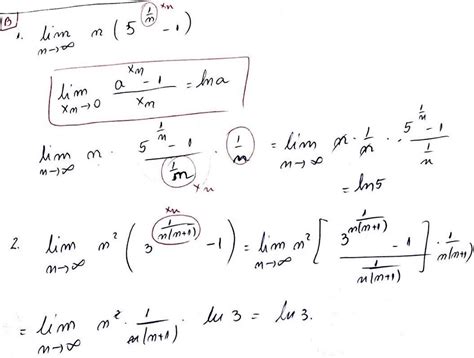 B
1. lim n→∞ n (5^(1/n) - 1) xₙ
lim xₙ→0 (a^(xₙ) - 1)/xₙ = ln a
lim n→∞ n · (5^(1/n) - 1)/(1/n) · 1/n = lim n→∞ n · 1/n · (5^(1/n) - 1)/(1/n)
xₙ
= ln5
xₙ
2. lim n→∞ n² (3^(1/(n(n+1))) - 1) = lim n→∞ n² [ (3^(1/(n(n+1))) - 1)/(1/(n(n+1))) ] · 1/(n(n+1))
= lim n→∞ n² · 1/(n(n+1)) · ln 3 = ln 3.